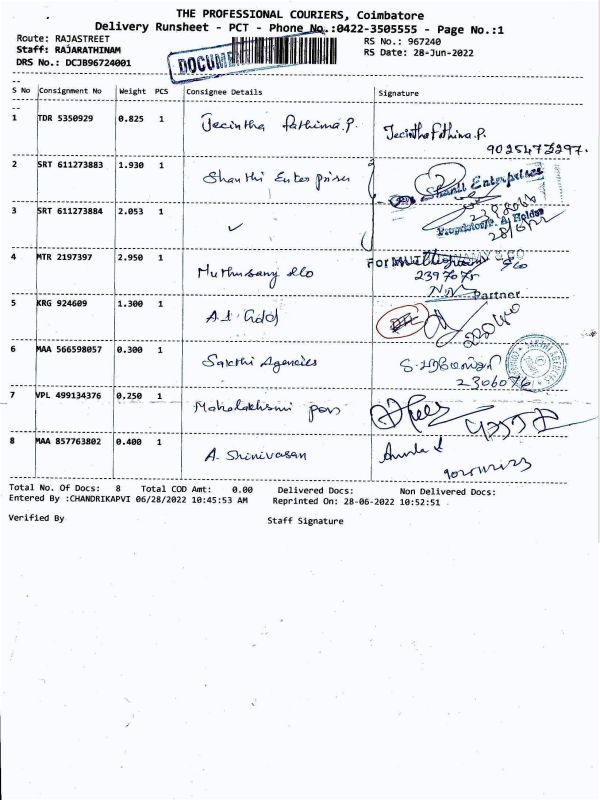 THE PROFESSIONAL COURIERS, Coimbatore
Delivery Runsheet - PCT - Phone No.:0422-3505555 - Page No.:1
Route: RAJASTREET RS No.: 967240
Staff: RAJARATHINAM RS Date: 28-Jun-2022
DRS No.: DCJB96724001
DOCUMENT
S No Consignment No Weight PCS Consignee Details Signature
1 TDR 5350929 0.825 1 Jecintha fathima.P. Jecintha fathima.P.
2 SRT 611273883 1.930 1 Shanthi Enterprises Shanti Enterprises
3 SRT 611273884 2.053 1
Proprietor/P. A. Holder
4 MTR 2197397 2.950 1 Muthusamy &co For
Partner
5 KRG 924609 1.300 1
6 MAA 566598057 0.300 1 Sakthi Agencies
2306076
7 VPL 499134376 0.250 1 Mahalakshmi
8 MAA 857763802 0.400 1 A. Shinivasan
Total No. Of Docs: 8 Total COD Amt: 0.00 Delivered Docs: Non Delivered Docs:
Entered By :CHANDRIKAPVI 06/28/2022 10:45:53 AM Reprinted On: 28-06-2022 10:52:51
Verified By Staff Signature